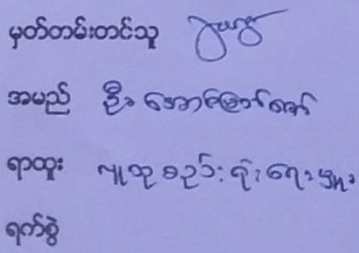 မှတ်တမ်းတင်သူ
အမည် ဦးအောင်ကျော်ဇော်
ရာထူး လူထုစည်းရုံးရေးမှူး
ရက်စွဲ